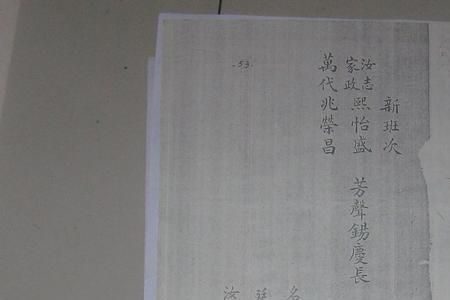 新班次
汝志
家政
熙怡盛 芳聲錫慶長
萬代兆榮昌
.53.
名
廷
汝